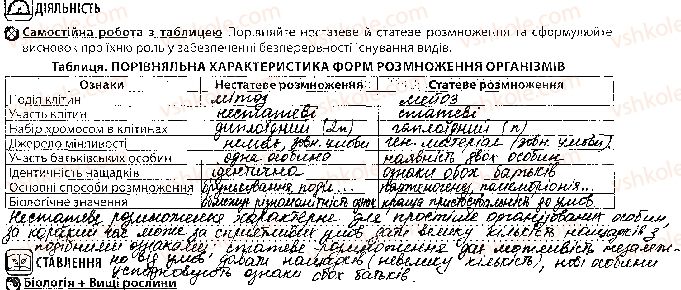 ДІЯЛЬНІСТЬ
Самостійна робота з таблицею Порівняйте нестатеве й статеве розмноження та сформулюйте
висновок про їхню роль у забезпеченні безперервності існування видів.
Таблиця. ПОРІВНЯЛЬНА ХАРАКТЕРИСТИКА ФОРМ РОЗМНОЖЕННЯ ОРГАНІЗМІВ
Ознаки Нестатеве розмноження Статеве розмноження
Поділ клітин мітоз мейоз
Участь клітин нестатеві статеві
Набір хромосом в клітинах диплоїдний (2n) гаплоїдний (n)
Джерело мінливості немає, зовн. умови ген. матеріал (зовн. умови)
Участь батьківських особин одна особина наявність двох особин
Ідентичність нащадків ідентична ознаки обох батьків
Основні способи розмноження брунькування, поділ... партеногенез,
Біологічне значення краще пристосування до умов
Нестатеве розмноження характерне для простіше організованих особин,
за короткий час може за сприятливих умов дати велику кількість нащадків з
порівняними ознаками, статеве розмноження дає можливість незалежно
СТАВЛЕННЯ від умов, давати нащадків (невелику кількість), нові особини
успадковують ознаки обох батьків.
Біологія + Вищі рослини